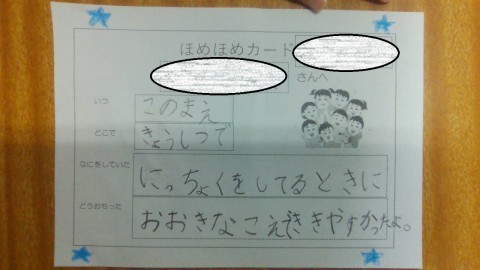 ほめほめカード
さんへ
いつ
このまえ
どこで
きょうしつで
なにをしていた
にっちょくをしてるときに
どうおもった
おおきなこえでききやすかったよ。